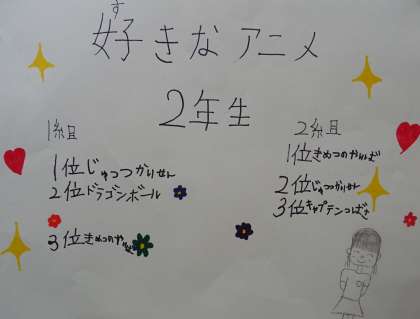 す
好きなアニメ
2年生
1組
1位じゅつかいせん
2位ドラゴンボール
3位きめつのやいば
2組
1位きめつのやいば
2位じゅつかいせん
3位キャプテンつばさ